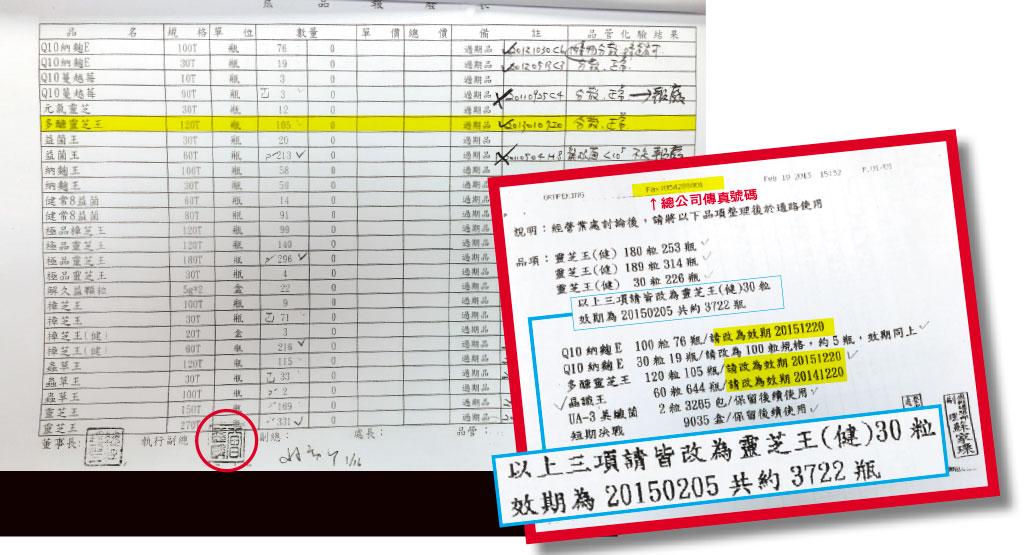 品名 規格 單位 數量 單價 總價 備註 品管化驗結果
Q10納麴E 100T 瓶 76 0 過期品 20121030C6
Q10納麴E 30T 瓶 19 0 過期品 分裝、正常
Q10蔓越莓 10T 瓶 3 0 過期品
Q10蔓越莓 90T 瓶 3 0 過期品 20110925C4 分裝、正常 → 報廢
元氣靈芝 30T 瓶 12 0 過期品
多醣靈芝王 120T 瓶 105 0 過期品 分裝、正常
益菌王 30T 瓶 20 0 過期品
益菌王 60T 瓶 213 0 過期品 報廢
納麴王 100T 瓶 58 0 過期品
納麴王 30T 瓶 50 0
健常8益菌 60T 瓶 14 0
健常8益菌 80T 瓶 91 0
極品樟芝王 120T 瓶 99 0
極品靈芝王 120T 瓶 140 0 過期品
極品靈芝王 180T 瓶 296 0 過期品
極品靈芝王 30T 瓶 4 0 過期品
解久益顆粒 5g*2 盒 22 0 過期品
樟芝王 100T 瓶 9 0 過期品
樟芝王 30T 瓶 71 0 過期品
樟芝王(健) 20T 盒 3 0 過期品
樟芝王(健) 60T 瓶 216 0 過期品
蟲草王 120T 瓶 115 0 過期品
蟲草王 30T 瓶 33 0 過期品
蟲草王 100T 瓶 2 0 過期品
靈芝王 150T 瓶 169 0 過期品
靈芝王 270T 瓶 331 0 過期品
董事長: 執行副總 副總: 處長: 品管:
1/16
Feb 19 2013 15:52 P.01/01
↑總公司傳真號碼
說明:經營業處討論後,請將以下品項整理後於通路使用
品項:靈芝王(健) 180 粒 253 瓶
靈芝王(健) 189 粒 314 瓶
靈芝王(健) 30 粒 226 瓶
以上三項請皆改為靈芝王(健)30 粒
效期為 20150205 共約 3722 瓶
Q10 納麴E 100 粒 76 瓶/請改為效期 20151220
Q10 納麴E 30 粒 19 瓶/請改為 100 粒規格,約 5 瓶,效期同上
多醣靈芝王 120 粒 105 瓶/請改為效期 20151220
晶識王 60 粒 644 瓶/請改為效期 20141220
UA-3 吳纖菌 2 粒 3265 包/保留後續使用
短期決戰 9035 盒/保留後續使用
以上三項請皆改為靈芝王(健)30 粒
效期為 20150205 共約 3722 瓶